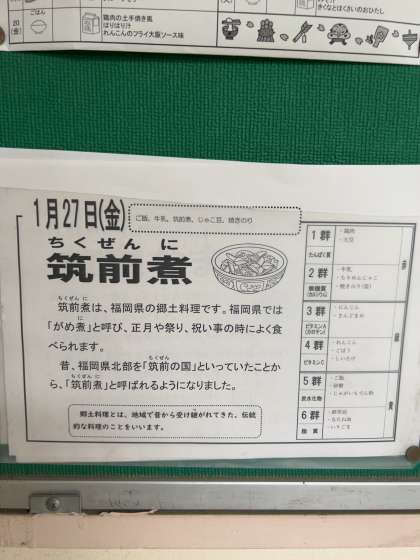 20
(金)
ごはん
鶏肉の土手焼き風
はりはり汁
れんこんのフライ大阪ソース味
きくなとはくさいのおひたし
1月27日(金)
ご飯、牛乳、筑前煮、じゃこ豆、焼きのり
ちくぜん に
筑前煮
ちくぜん に
筑前煮は、福岡県の郷土料理です。福岡県では
「がめ煮」と呼び、正月や祭り、祝い事の時によく食
べられます。
ちくぜん
昔、福岡県北部を「筑前の国」といっていたことか
ちくぜん に
ら、「筑前煮」と呼ばれるようになりました。
郷土料理とは、地域で昔から受け継がれてきた、伝統
的な料理のことをいいます。
1群
たんぱく質
・鶏肉
・大豆
2群
無機質
(カルシウム)
・牛乳
・ちりめんじゃこ
・焼きのり
3群
ビタミンA
(カロテン)
・にんじん
・さんどまめ
4群
ビタミンC
・れんこん
・ごぼう
・しいたけ
5群
炭水化物
・ご飯
・砂糖
・じゃがいもでん粉
6群
脂質